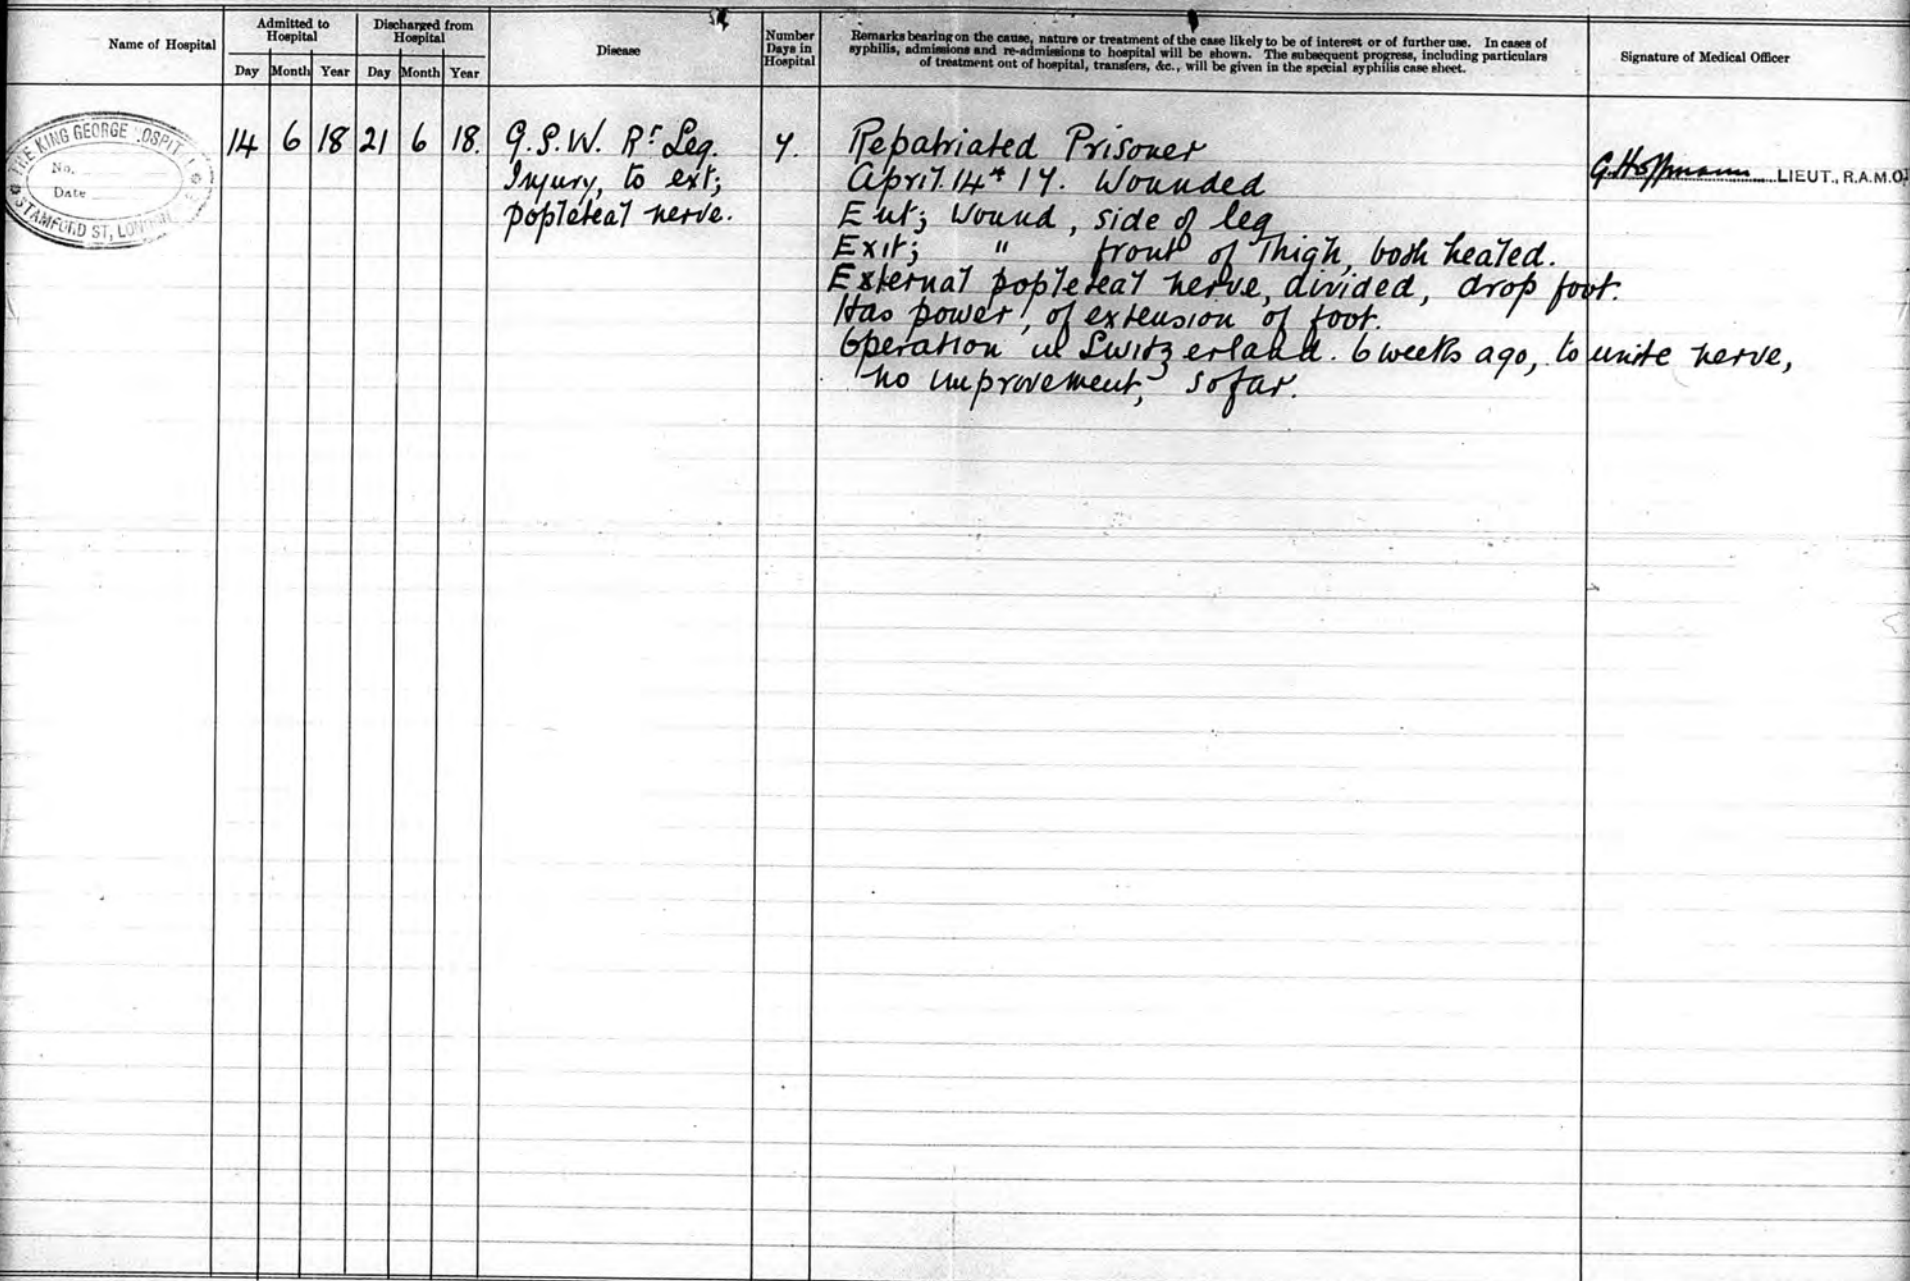 Name of Hospital
Admitted to Hospital
Day Month Year
Discharged from Hospital
Day Month Year
Disease
Number Days in Hospital
Remarks bearing on the cause, nature or treatment of the case likely to be of interest or of further use. In cases of
syphilis, admissions and re-admissions to hospital will be shown. The subsequent progress, including particulars
of treatment out of hospital, transfers, &c., will be given in the special syphilis case sheet.
Signature of Medical Officer
KING GEORGE
No.
Date
STAMFORD ST, LONDON
14 6 18 21 6 18.
G.S.W. Rt Leg.
Injury, to ext;
popleteal nerve.
7.
Repatriated Prisoner
April 14th 17. Wounded
Ent; Wound, side of leg
Exit; " front of Thigh, both healed.
External popleteal nerve, divided, drop foot.
Has power, of extension of foot.
Operation in Switzerland. 6 weeks ago, to unite nerve,
no improvement, so far.
G. Hoffmann LIEUT., R.A.M.C.